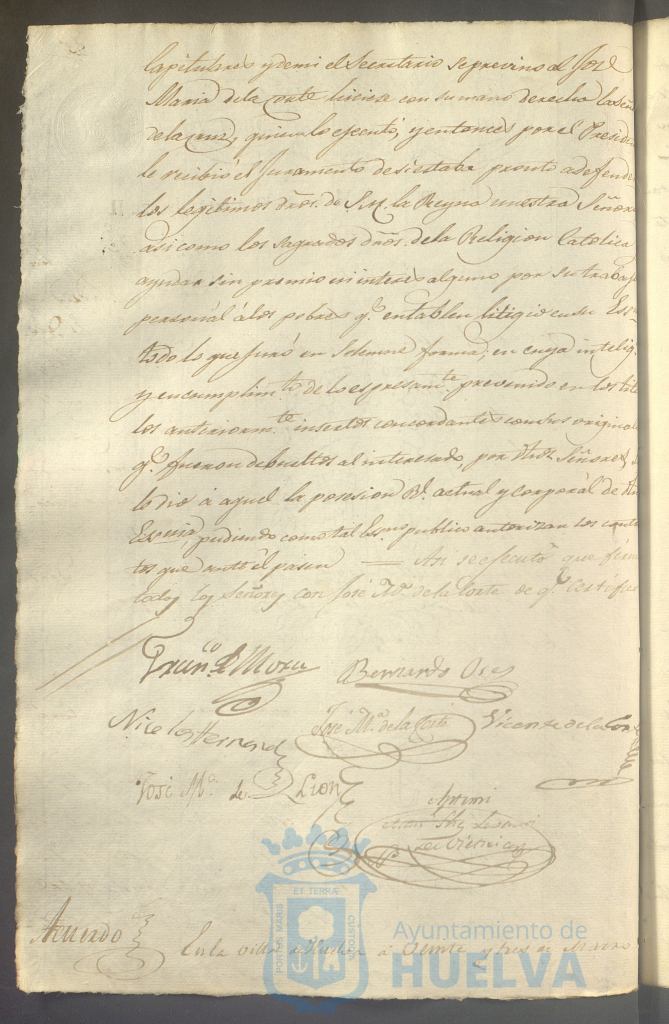 Capitulares y de mi el Secretario se previno al José
Maria de la Corte hiciera con su mano derecha la Señ
de la cruz, quien lo ejecutó, y entonces por el Presiden
le recibió el Juramento de si estaba pronto a defender
los legitimos dros. de S.M. la Reyna nuestra Señora
asi como los sagrados dros. de la Religion Catolica
ayudar sin premio ni interes alguno por su trabajo
personal á los pobres q.e entablen litigio en su Es
todo lo que juró en solemne forma; en cuya intelig
y en cumplim.to de lo espresam.te prevenido en los tit
los anteriorm.te insertos concordantes con sus original
q.e fueron debueltos al interesado, por dhos. Señores se
le dio á aquel la posesion Rl. actual y corporal de dha
Escnia, pudiendo como tal Esno publico autorizar los contra
tos que ante él pasen = Asi se ejecutó que firm
todos los Señores con José M.a de la Corte de q.e certifico
Fran.co de Mora
Bernardo
Nicolas Hernand
José M.a de la Corte
Vicente de la Cor
José M.a de Leon
Antemi
Acuerdo
En la villa de Huelva á veinte y tres de Marzo
ET TERRÆ
PORTUS MARIS
CUSTODIA
Ayuntamiento de
HUELVA